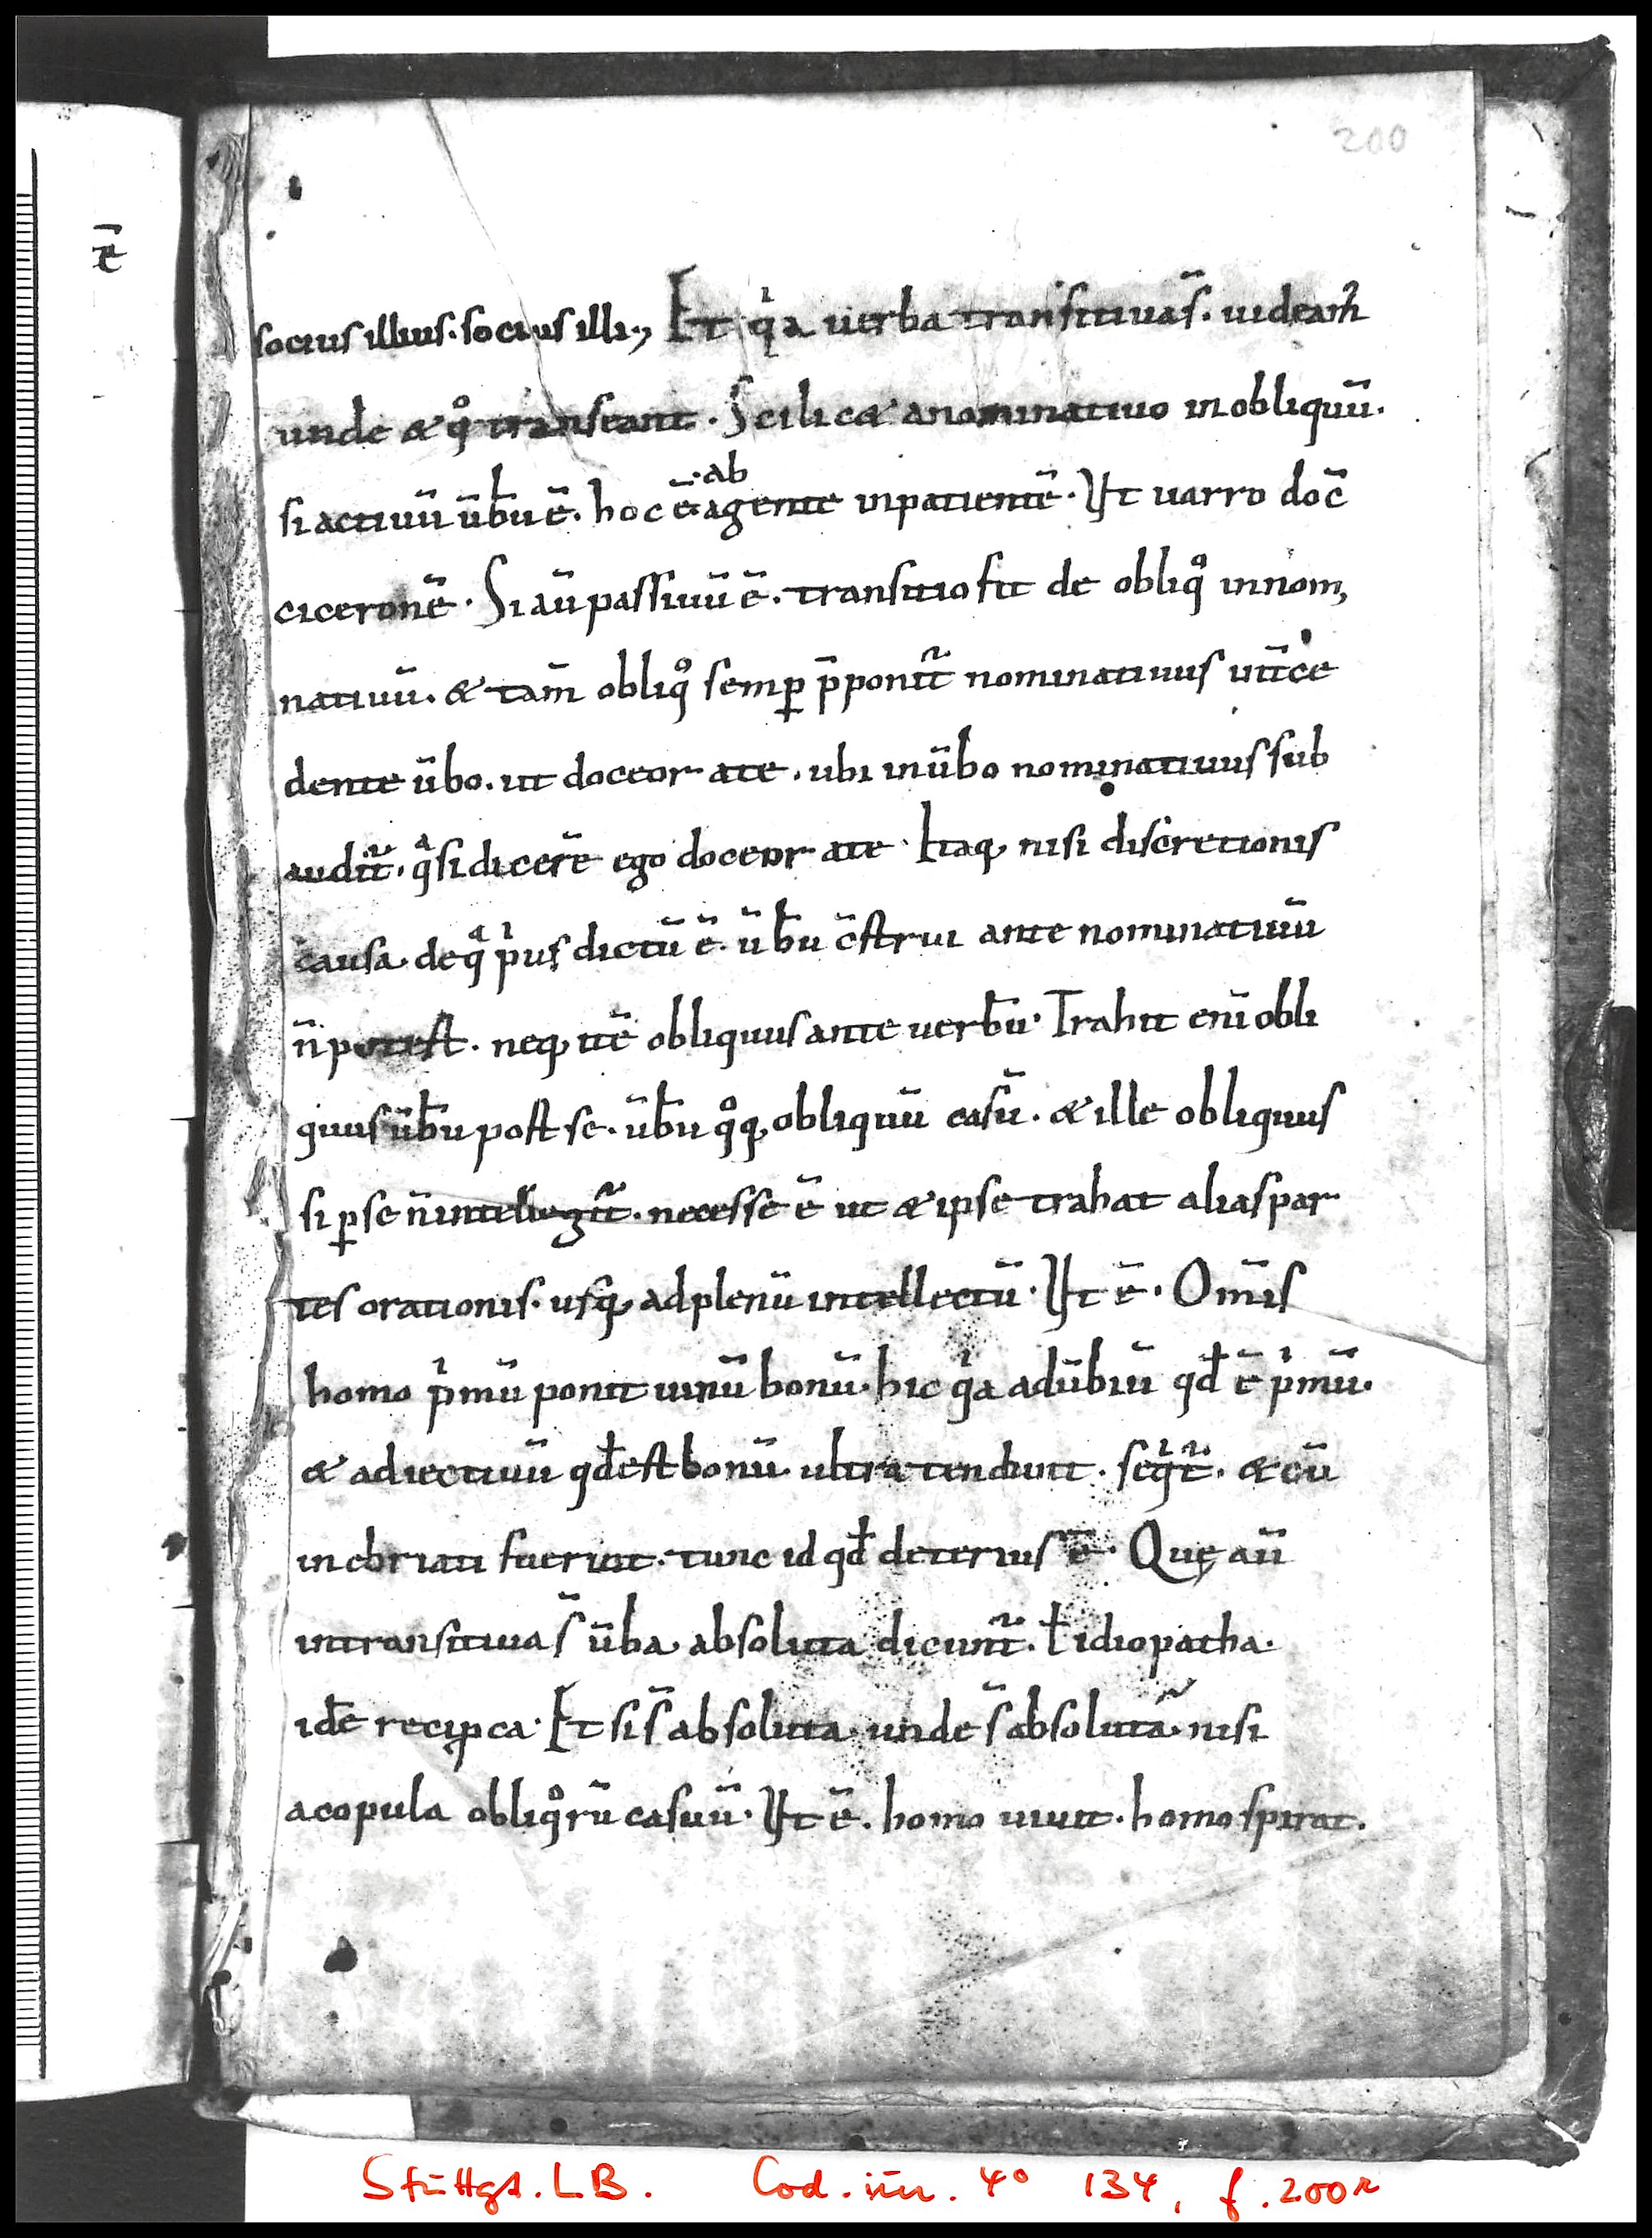 200
socius illius. socius illi., Et qͥa uerba transitiua s̄. uideam̃
unde & qͦ transeant. Scilic& a nominatiuo in obliquū.
si actiuū ūb̄u ē. hoc ē. ab agente in patientē. Ut uarro doc̄
ciceronē. Si aū passiuū ē. transitio fit de obliqͦ in nom,
natiuū. & tam̄ obliqͦ semꝑ p̄ponit᷑ nominatiuus
dente ūbo. ut doceor a te. ubi in ūbo nominatiuus sub
audit᷑. qͣsi dicerē ego doceor a te. Itaq, nisi discretionis
causa de qͣ pͥus dictū ē. ūb̄u c̄strui ante nominatiuū
n̄ potest. neq, itē obliquus ante uerb̄u. Trahit eni̅ obli
quus ūb̄u post se. ūb̄u qͦq, obliquū casū. & ille obliquus
si ꝑ se n̄ intellegit᷑. necesse ē ut & ipse trahat alias par
tes orationis. usq, ad plenū intellectū. Ut ē. Om̄is
homo pͥmū ponit uinū bonū. hic qͥa adūbiū qđ ē pͥmū.
& adiectiuū qđ est bonū ultra tendunt. seqͥt᷑. & cū
inebriati fuerint. tunc id qđ deterius ē. Quę aū
intransitiua s̄ ūba absoluta dicunt᷑. ł idiopatha.
id ē reciꝓca. Et si s̄ absoluta. unde s̄ absoluta nisi
a copula obliqͦrū casuū. Ut ē. homo uiuit. homo spirat.
Stuttgt. LB. Cod. iur. 4° 134, f. 200r